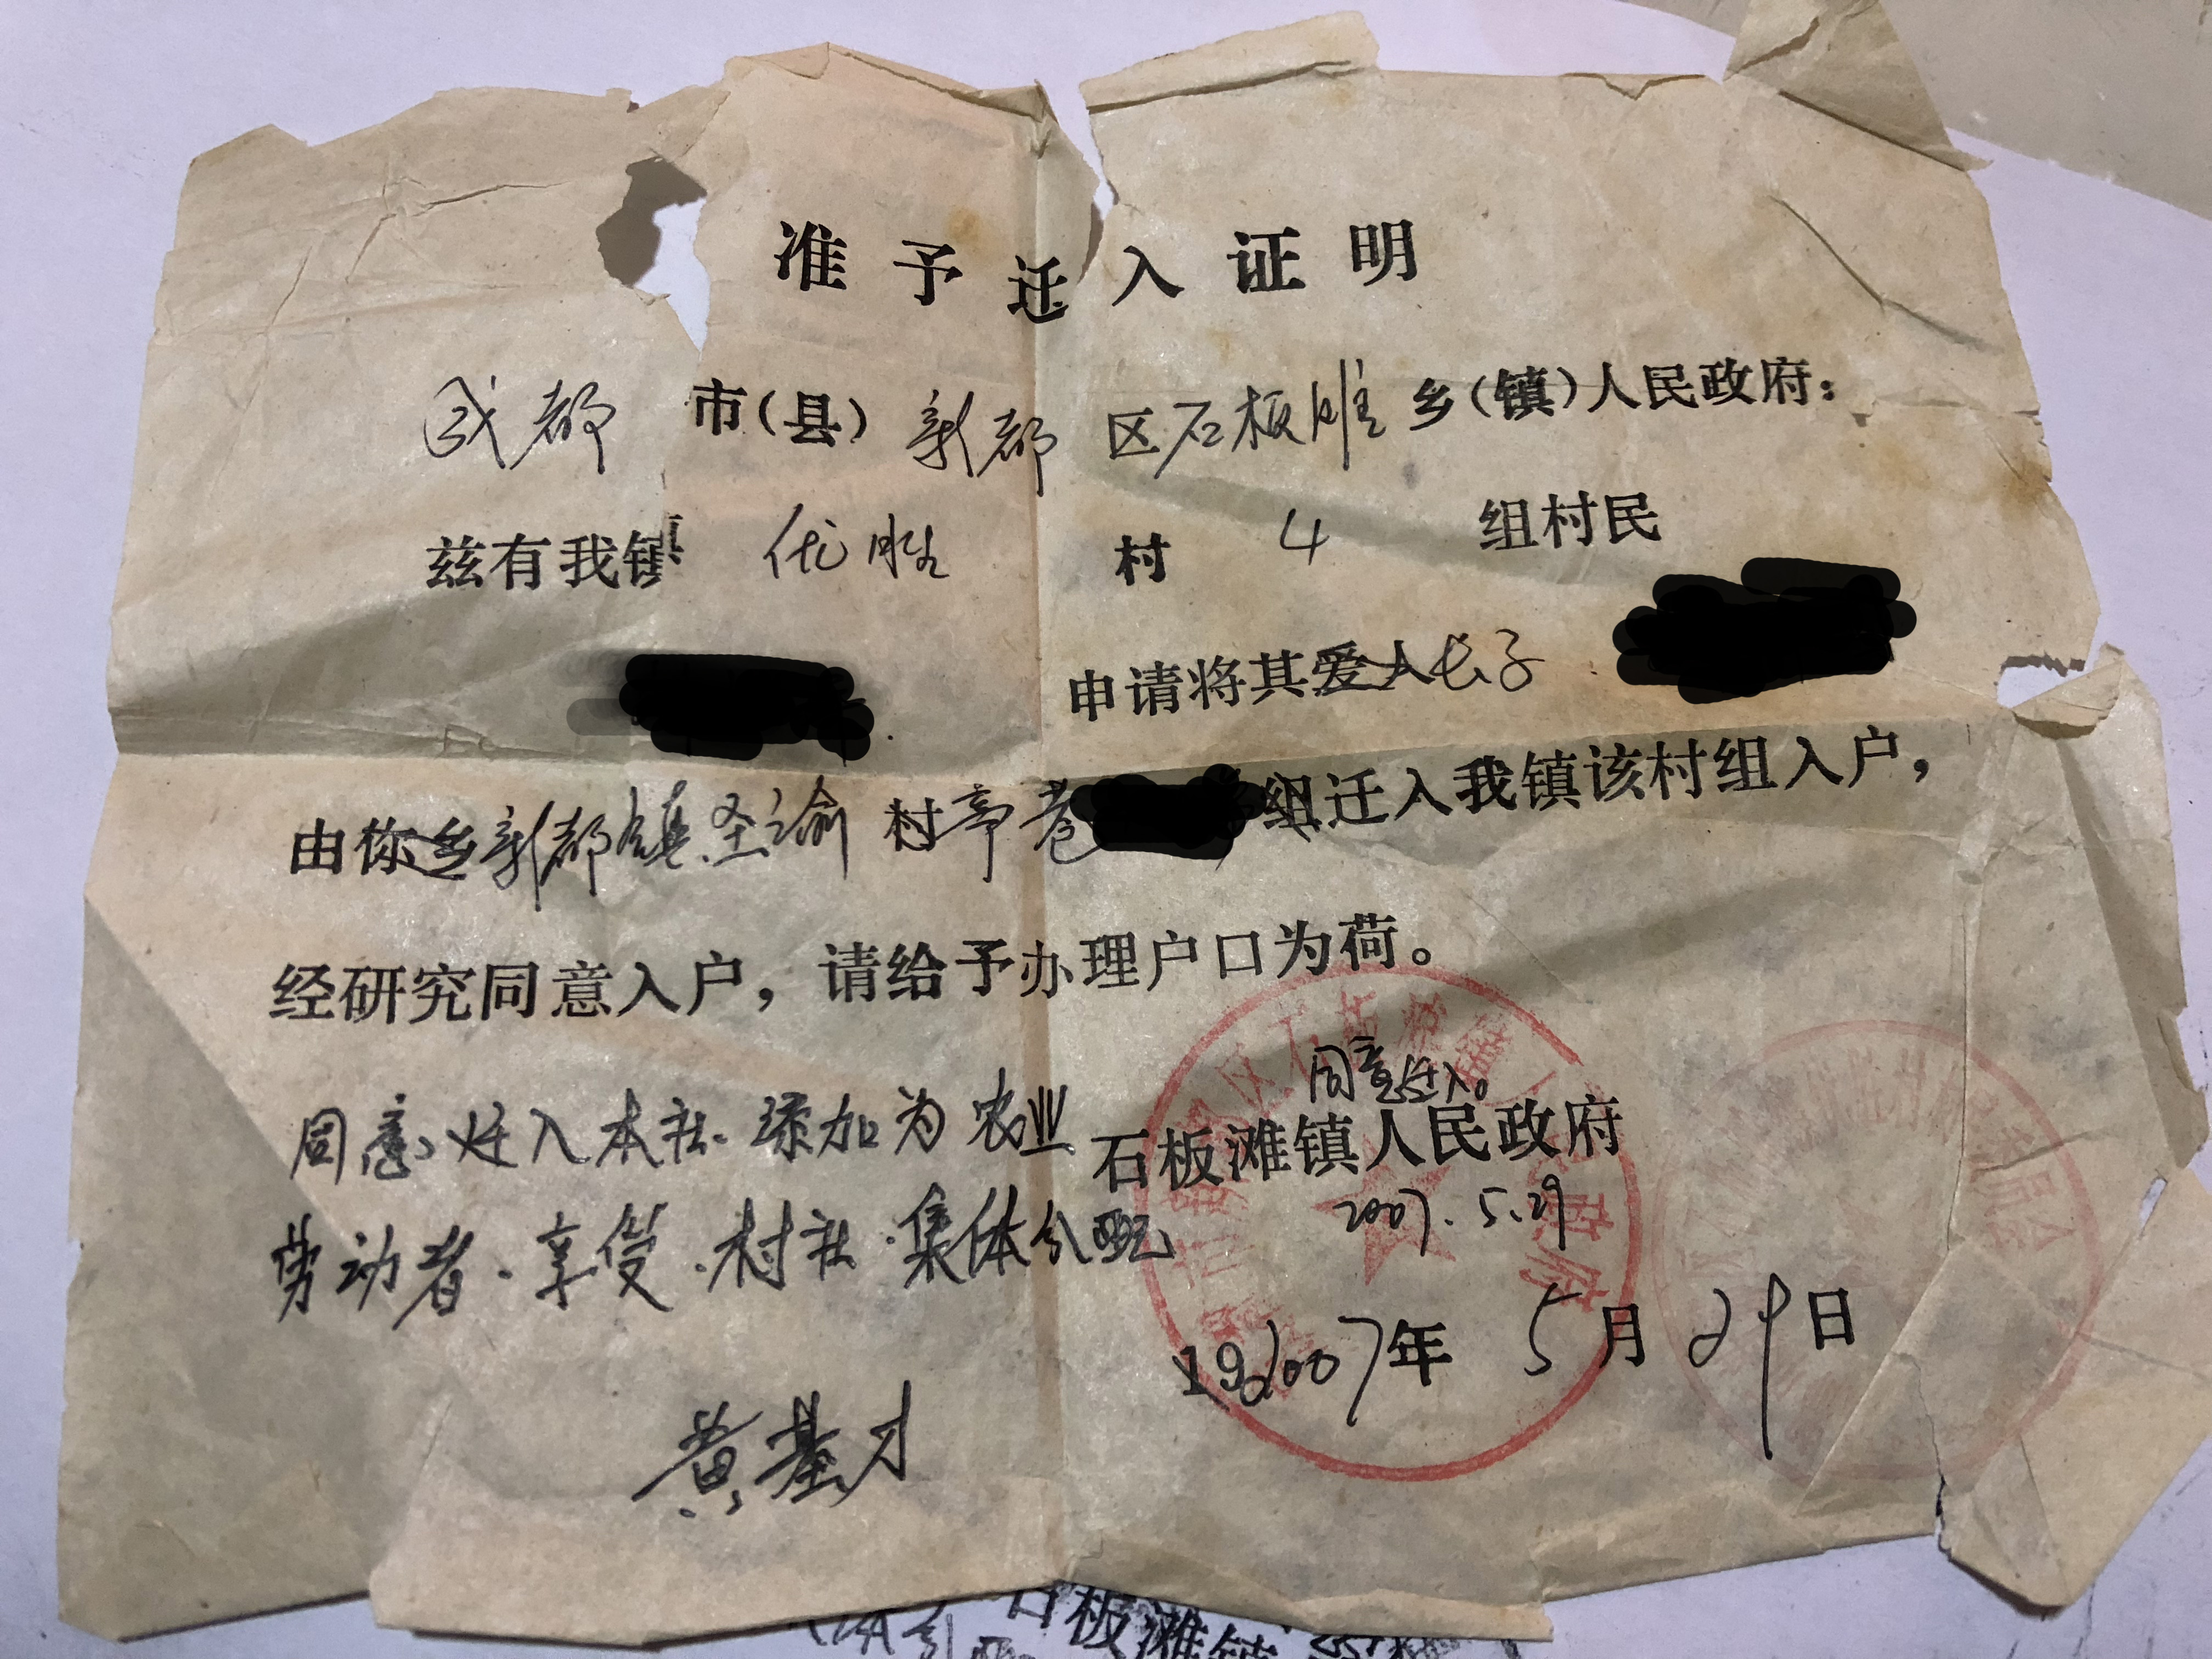 准予迁入证明
成都市(县)新都区石板滩乡(镇)人民政府:
兹有我镇优胜村4组村民
申请将其爱人长子
由你乡新都镇圣谕村亭巷组迁入我镇该村组入户,
经研究同意入户,请给予办理户口为荷。
同意迁入本社.添加为农业
劳动者.享受.村社.集体分配
黄基才
同意迁入。
石板滩镇人民政府
2007.5.29
192007年5月29日
石板滩镇